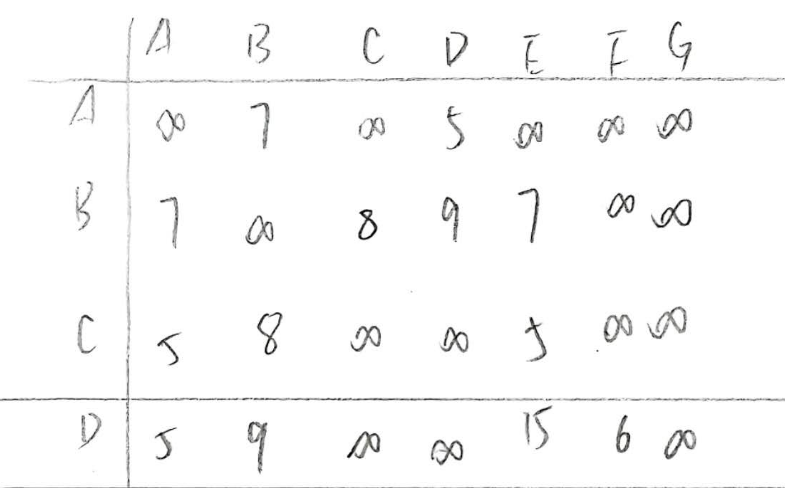 A B C D E F G
A ∞ 7 ∞ 5 ∞ ∞ ∞
B 7 ∞ 8 9 7 ∞ ∞
C 5 8 ∞ ∞ 5 ∞ ∞
D 5 9 ∞ ∞ 15 6 ∞